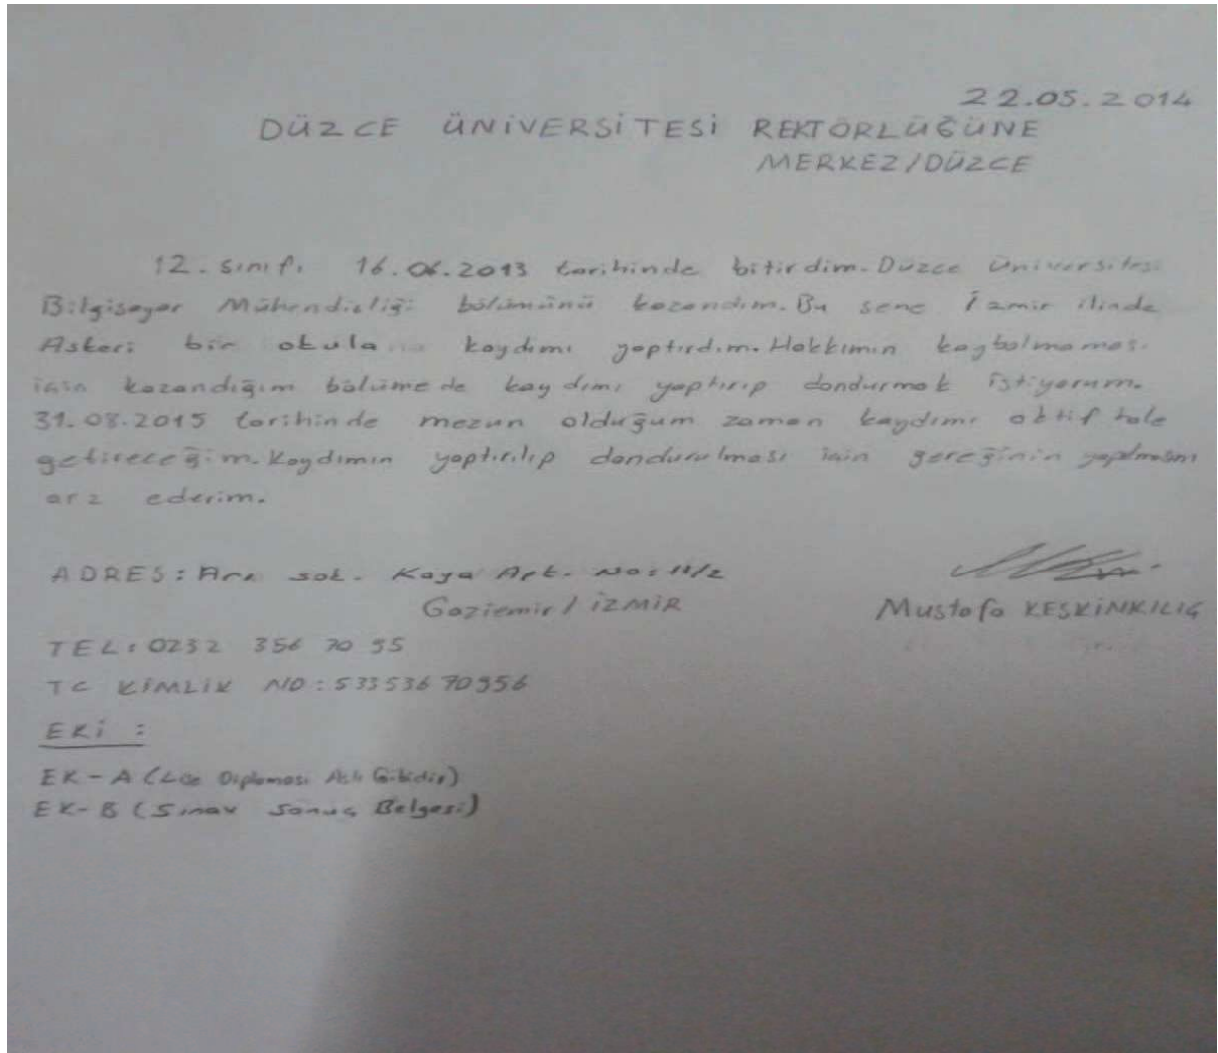 22.05.2014
DÜZCE ÜNİVERSİTESİ REKTÖRLÜĞÜNE
MERKEZ/DÜZCE
12. sınıfı 16.06.2013 tarihinde bitirdim. Düzce Üniversitesi
Bilgisayar Mühendisliği bölümünü kazandım. Bu sene İzmir ilinde
Askeri bir okula kaydımı yaptırdım. Hakkımın kaybolmaması
için kazandığım bölüme de kaydımı yaptırıp dondurmak istiyorum.
31.08.2015 tarihinde mezun olduğum zaman kaydımı aktif hale
getireceğim. Kaydımın yaptırılıp dondurulması için gereğinin yapılmasını
arz ederim.
ADRES: Ara sok. Kaya Apt. No: 11/2
Gaziemir / İZMİR
Mustafa KESKİNKILIÇ
TEL: 0232 356 70 55
TC KİMLİK NO: 53353670956
EKİ :
EK-A (Lise Diploması Aslı Gibidir)
EK-B (Sınav Sonuç Belgesi)